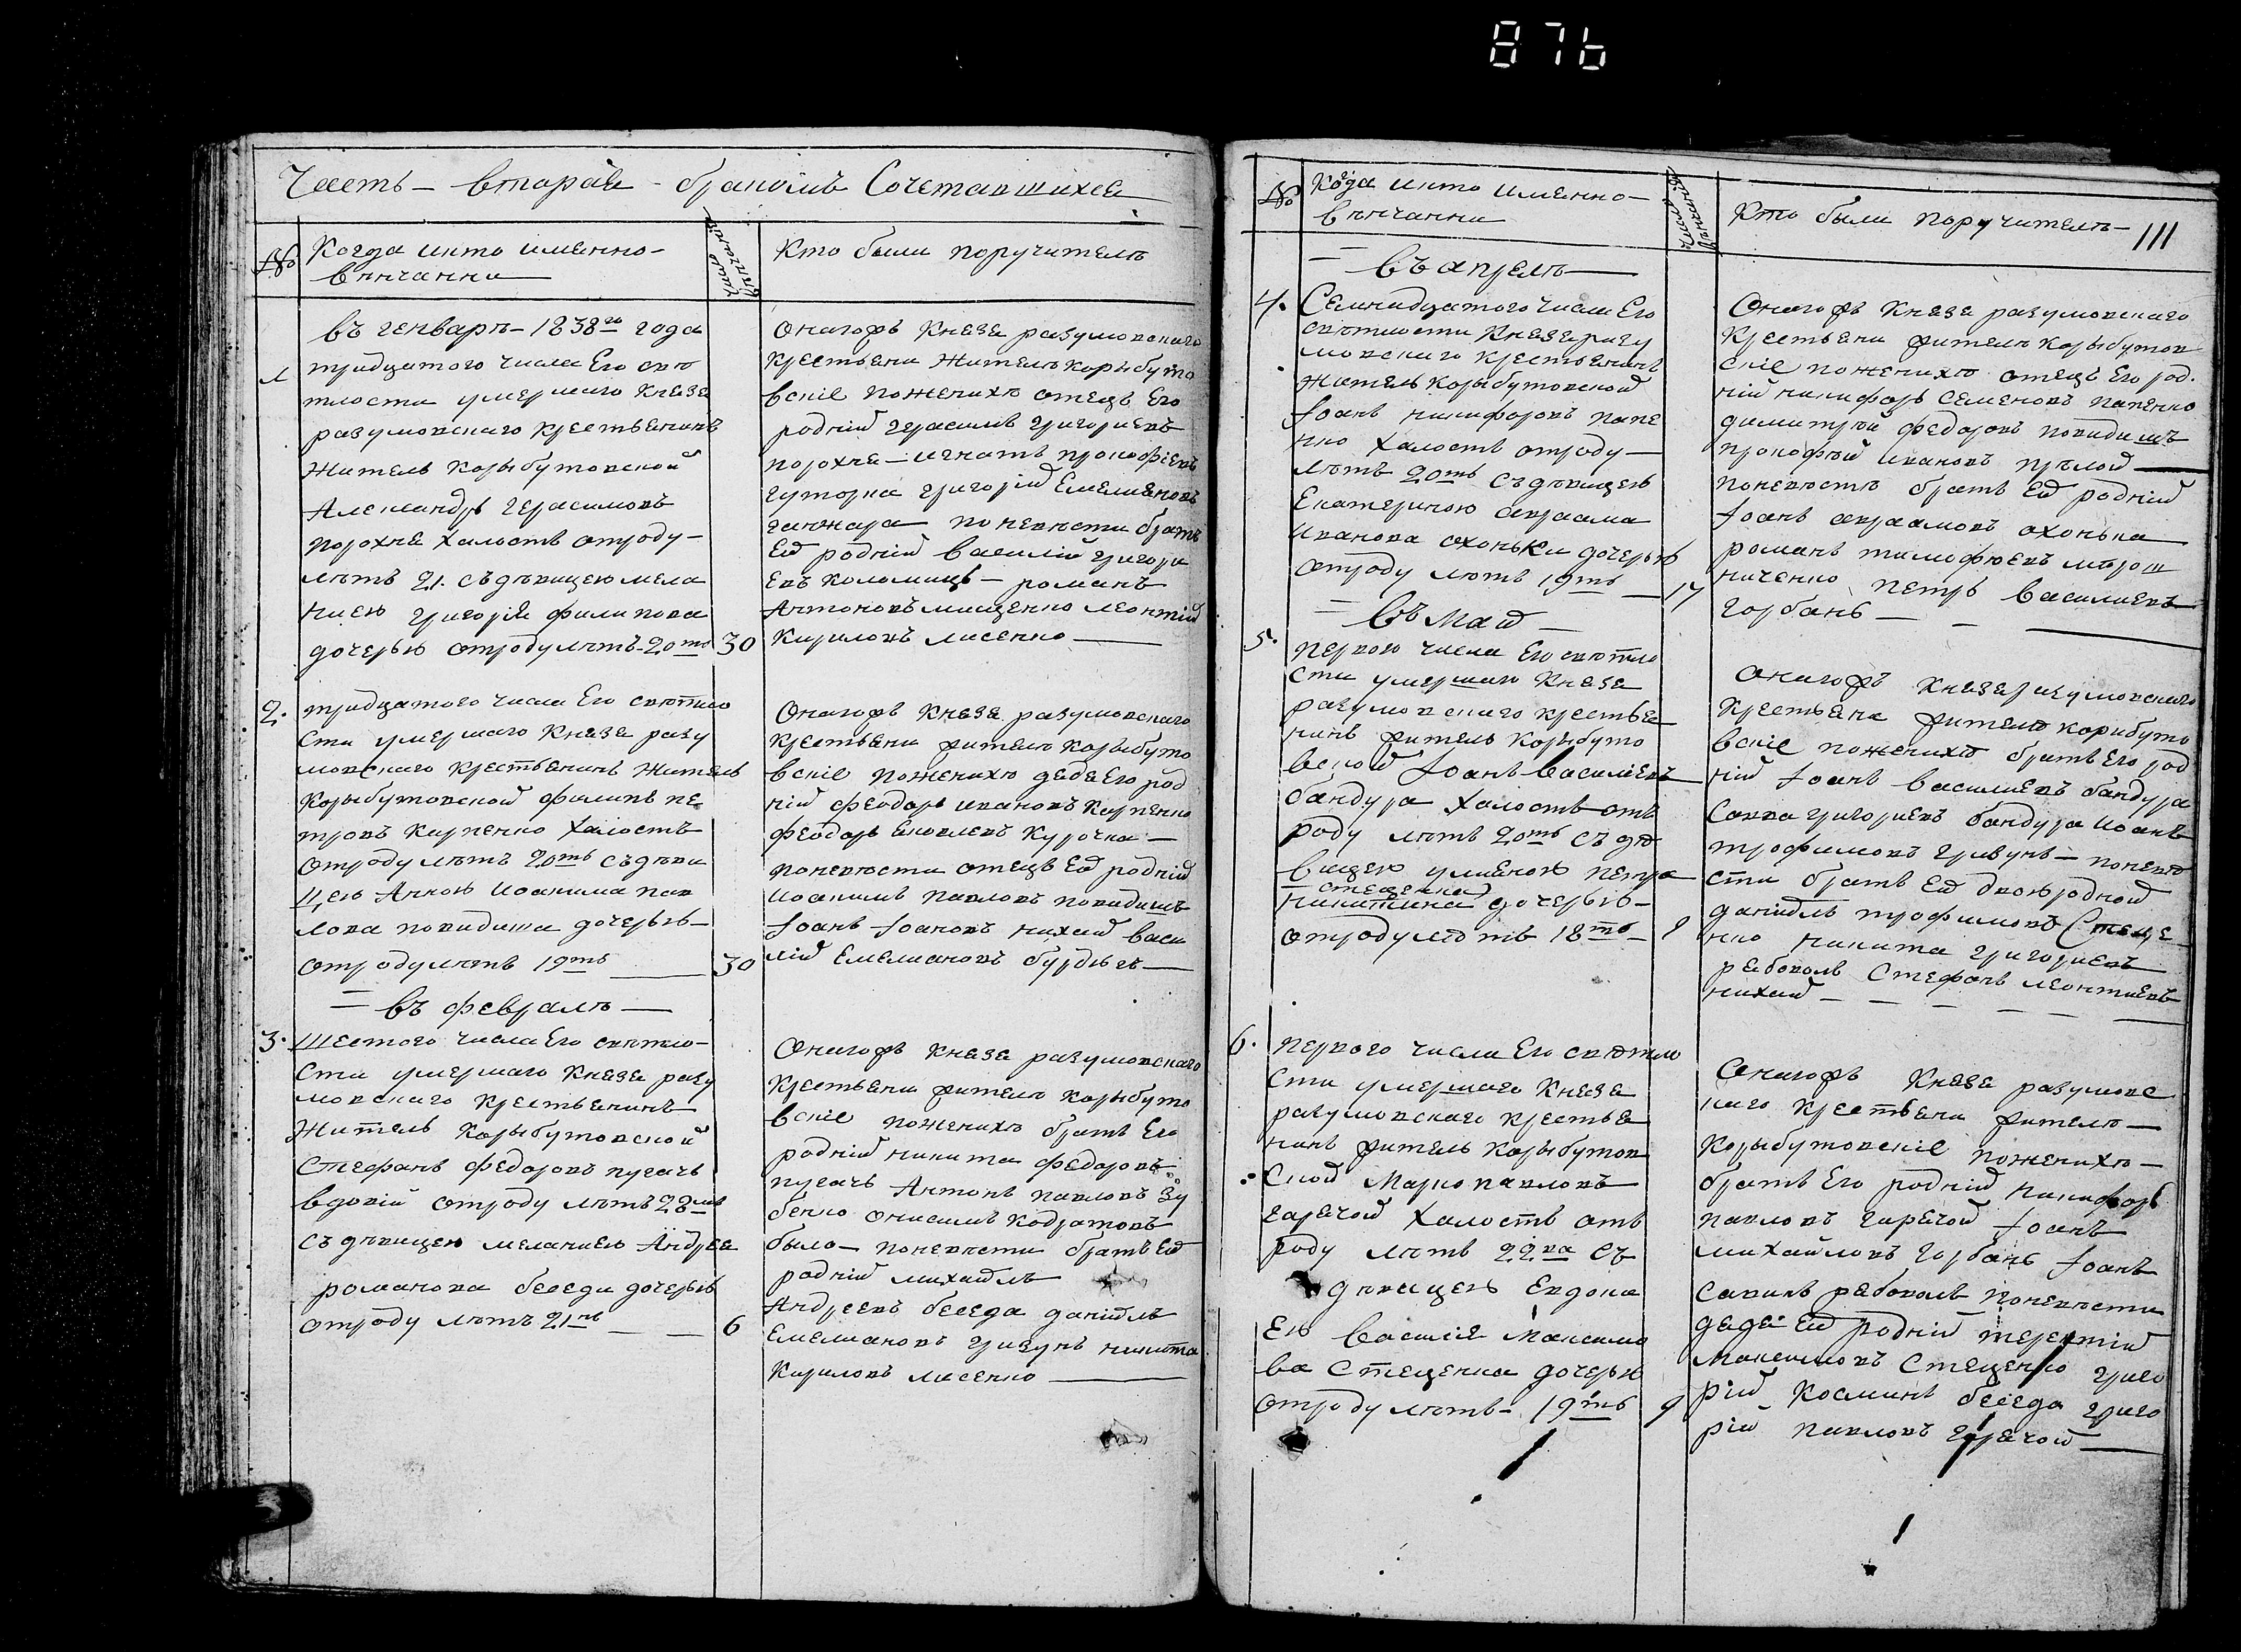 876
Часть – вторая – бракомъ Сочетавшихся
№
Когда икто именно –
вѣнчанни
Число
вѣнчания
Кто были поручителѣ
въ генварѣ – 1838го года
1
тридцатого числа Его свѣ
тлости умершаго Князя
разумовскаго крестьянинъ
Житель Корыбутовской
Александръ Герасимовъ
порохня халостъ отроду –
лѣтъ 21. съдѣвицею мела
ниею григорія филипова
дочерью отроду лѣтъ 20ть 30
Онагожъ Князя разумовскаго
Крестьяни Жителѣ корыбуто
вскіе поженихѣ отецъ Его
родній герасимъ григориевъ
порохня – игнатъ прокофіевъ
гуторка григорій Емелияновъ
ганжара поневѣсти братъ
Ей родній василій григори
евъ коломиецъ – романъ
Антоновъ мищенко леонтій
Кириловъ лисенко
2. тридцатого числа Его свѣтло
сти умершаго Князя разу
мовскаго крестьянинъ Житель
Корыбутовской филипъ пе
тровъ Карпенко халостъ
отроду лѣтъ 20ть съдѣви
цею Анною Иоакима пав
лова повидиша дочерью –
отроду лѣтъ 19ть 30
Онагожъ Князя разумовскаго
крестьяни жителѣ корыбуто
вскіе поженихѣ дядя Его род
ній феодоръ ивановъ Карпенко
феодоръ Яковлевъ Курочка –
поневѣсти отецъ Ей родній
иоакимъ павловъ повидишъ
Іоанъ Іоановъ нихай васи
лій Емелиановъ бурдюгъ
въ февралѣ
3. Шестого числа Его свѣтло –
сти умершаго Князя разу
мовскаго крестьянинъ
Житель Корыбутовской
Стефанъ федоровъ пугачъ
вдовій отроду лѣтъ 28мъ
съ дѣвицею меланиею Андрея
романова беседи дочерью
отроду лѣтъ 21нъ 6
Онагожъ Князя разумовскаго
Крестьяни жителѣ корыбуто
вскіе поженихѣ братъ Его
родній никита федоровъ
пугачъ Антонъ павловъ Зу
бенко онисимъ кодратовъ
было – поневѣсти братъ Ей
родній михайлъ
Андреевъ беседа данійлъ
Емелиановъ гризунъ никита
Кириловъ лисенко
№
Когда икто именно –
вѣнчанни
Число
вѣнчания
Кто были поручителѣ –
111
въ апрелѣ
4. Семнадцатого числа Его
свѣтлости Князя разу
мовскаго крестьянинъ
Житель корыбутовской
Іоанъ никифоровъ папе
нко халостъ отроду –
лѣтъ 20ть съдѣвицею
Екатериною авраама
Иванова охоньки дочерью
отроду лѣтъ 19ть 17
Онагожъ Князя разумовскаго
крестьяни жителѣ корыбутов
скіе поженихѣ отецъ Его род
ній никифоръ Семеновъ папенко
димитрій федоровъ повидишъ
прокофій ивановъ прѣлой
поневѣстѣ братъ Ей родній
Іоанъ авраамовъ охонька
романъ тимофѣевъ мирош
ниченко петръ василиевъ
горбань
въ Маѣ
5. первого числа Его свѣтло
сти умершаго Князя
разумовскаго крестья
нинъ житель корыбуто
вской Іоанъ василіевъ
бандура халостъ отъ
роду лѣтъ 20ть съ дѣ
вицею улияною петра
стеценка
никитина дочерью –
отроду лѣтъ 18ть
онагожъ князя разумовскаго
крестьяне жителѣ корибуто
вскіе поженихѣ братъ Его род
ній Іоанъ василиевъ бандура
Савва григориевъ бандура иоанъ
трофимовъ гризунъ – поневѣ
сти братъ Ей двоюродной
данійлъ трофимовъ Стеце
нко никита григориевъ
рябоконь Стефанъ леонтиевъ
нихай
6. первого числа Его свѣтло
сти умершаго Князя
разумовскаго крестья
нинъ житель корыбутов
ской Марко павловъ
гарячой халостъ отъ
роду лѣтъ 22ва съ
дѣвицею Евдоки
ею василія максимо
ва Стеценка дочерью
отроду лѣтъ – 19ть
Онагожъ Князя разумовс
каго крестьяни жителѣ –
Корыбутовскіе поженихѣ –
братъ Его родній никифоръ
павловъ гарячой Іоанъ
михайловъ горбань Іоанъ
Савинъ рябоконь поневѣсти
дядя Ей родній терентій
максимовъ Стеценко григо
рій Косминъ беседа григо
рій павловъ гарячой